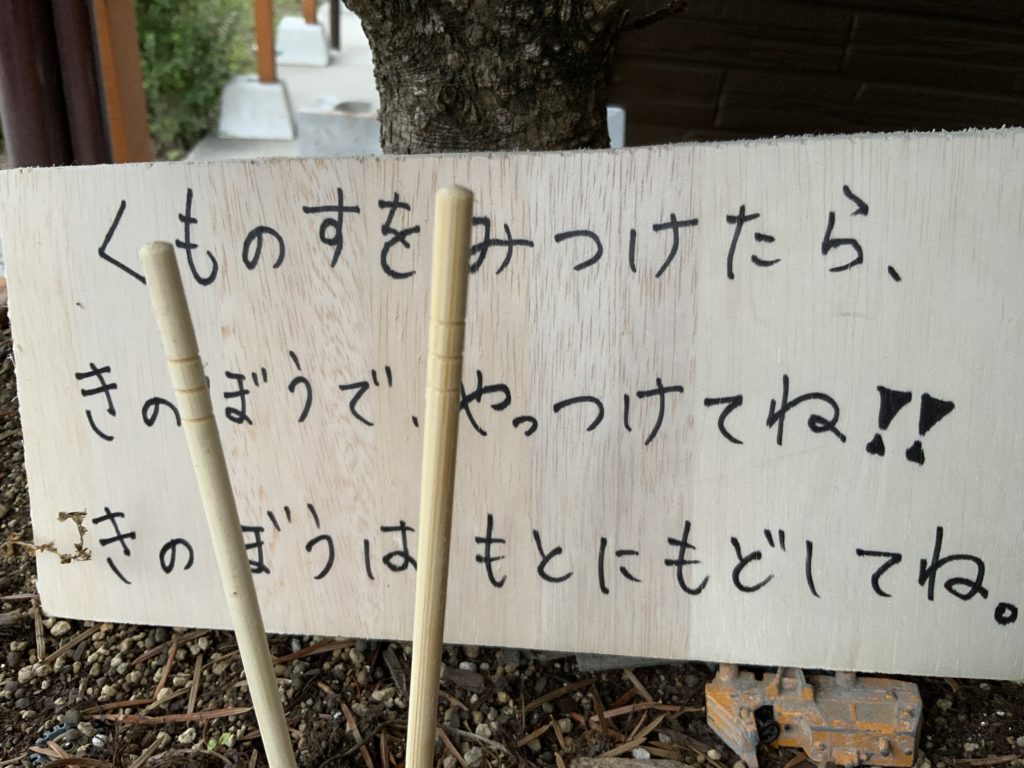 くものすをみつけたら、
きのぼうで、やっつけてね!!
きのぼうはもとにもどしてね。